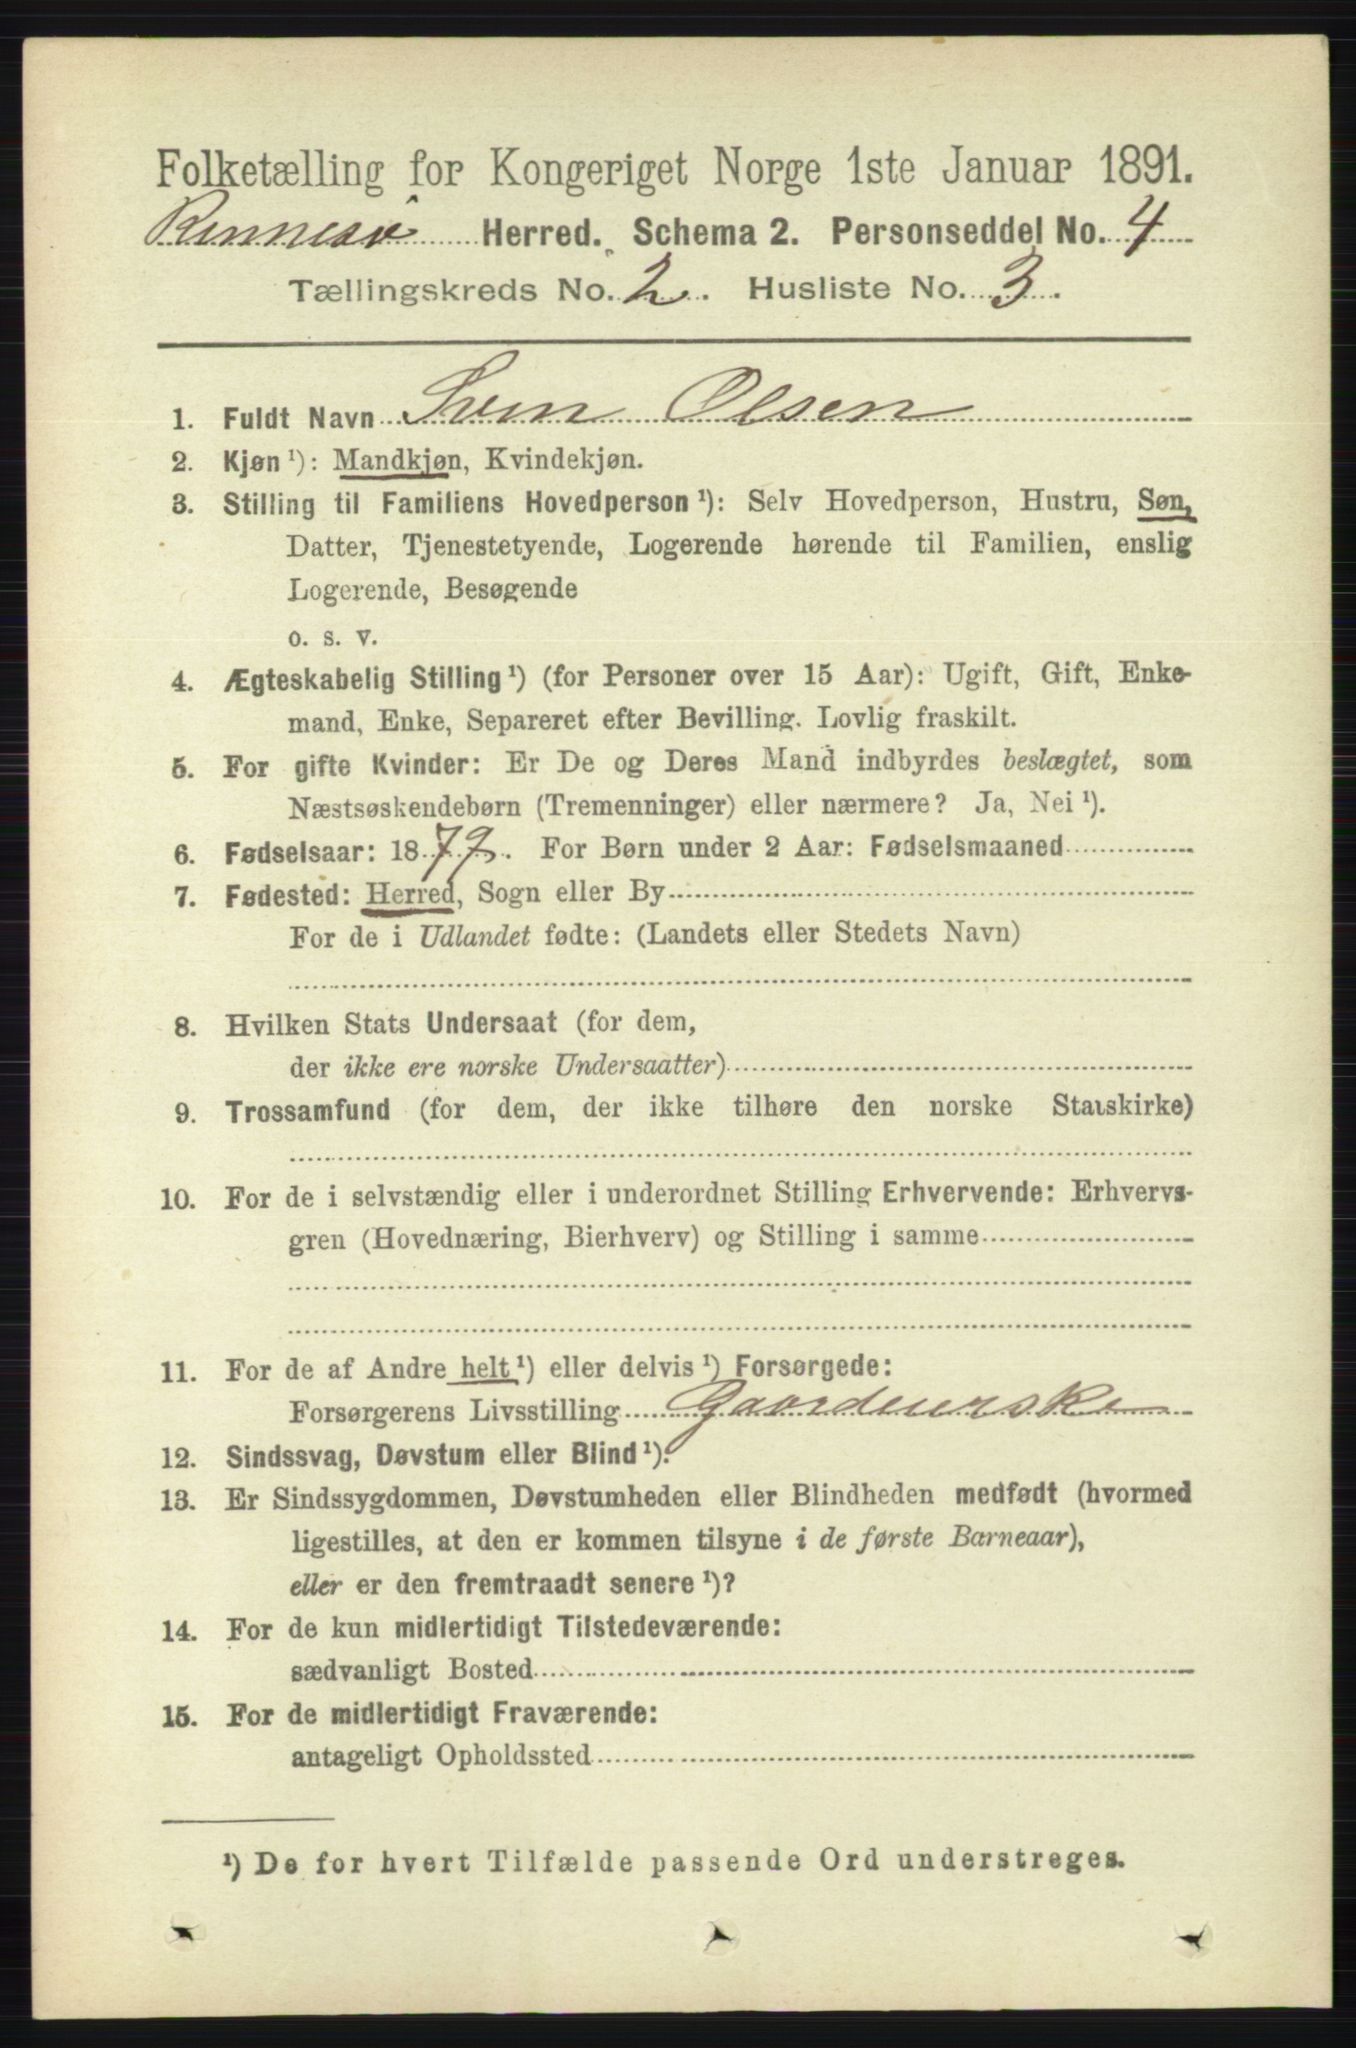 Folketælling for Kongeriget Norge 1ste Januar 1891.
Rennesø Herred. Schema 2. Personseddel No. 4
Tællingskreds No. 2. Husliste No. 3.
1. Fuldt Navn Sven Olsen
2. Kjøn ¹): Mandkjøn, Kvindekjøn.
3. Stilling til Familiens Hovedperson ¹): Selv Hovedperson, Hustru, Søn,
Datter, Tjenestetyende, Logerende hørende til Familien, enslig
Logerende, Besøgende
o. s. v.
4. Ægteskabelig Stilling ¹) (for Personer over 15 Aar): Ugift, Gift, Enke-
mand, Enke, Separeret efter Bevilling. Lovlig fraskilt.
5. For gifte Kvinder: Er De og Deres Mand indbyrdes beslægtet, som
Næstsøskendebørn (Tremenninger) eller nærmere? Ja, Nei ¹).
6. Fødselsaar: 1879. For Børn under 2 Aar: Fødselsmaaned
7. Fødested: Herred, Sogn eller By
For de i Udlandet fødte: (Landets eller Stedets Navn)
8. Hvilken Stats Undersaat (for dem,
der ikke ere norske Undersaatter)
9. Trossamfund (for dem, der ikke tilhøre den norske Statskirke)
10. For de i selvstændig eller i underordnet Stilling Erhvervende: Erhvervs-
gren (Hovednæring, Bierhverv) og Stilling i samme
11. For de af Andre helt ¹) eller delvis ¹) Forsørgede:
Forsørgerens Livsstilling
12. Sindssvag, Døvstum eller Blind ¹).
13. Er Sindssygdommen, Døvstumheden eller Blindheden medfødt (hvormed
ligestilles, at den er kommen tilsyne i de første Barneaar),
eller er den fremtraadt senere ¹)?
14. For de kun midlertidigt Tilstedeværende:
sædvanligt Bosted
15. For de midlertidigt Fraværende:
antageligt Opholdssted
¹) De for hvert Tilfælde passende Ord understreges.